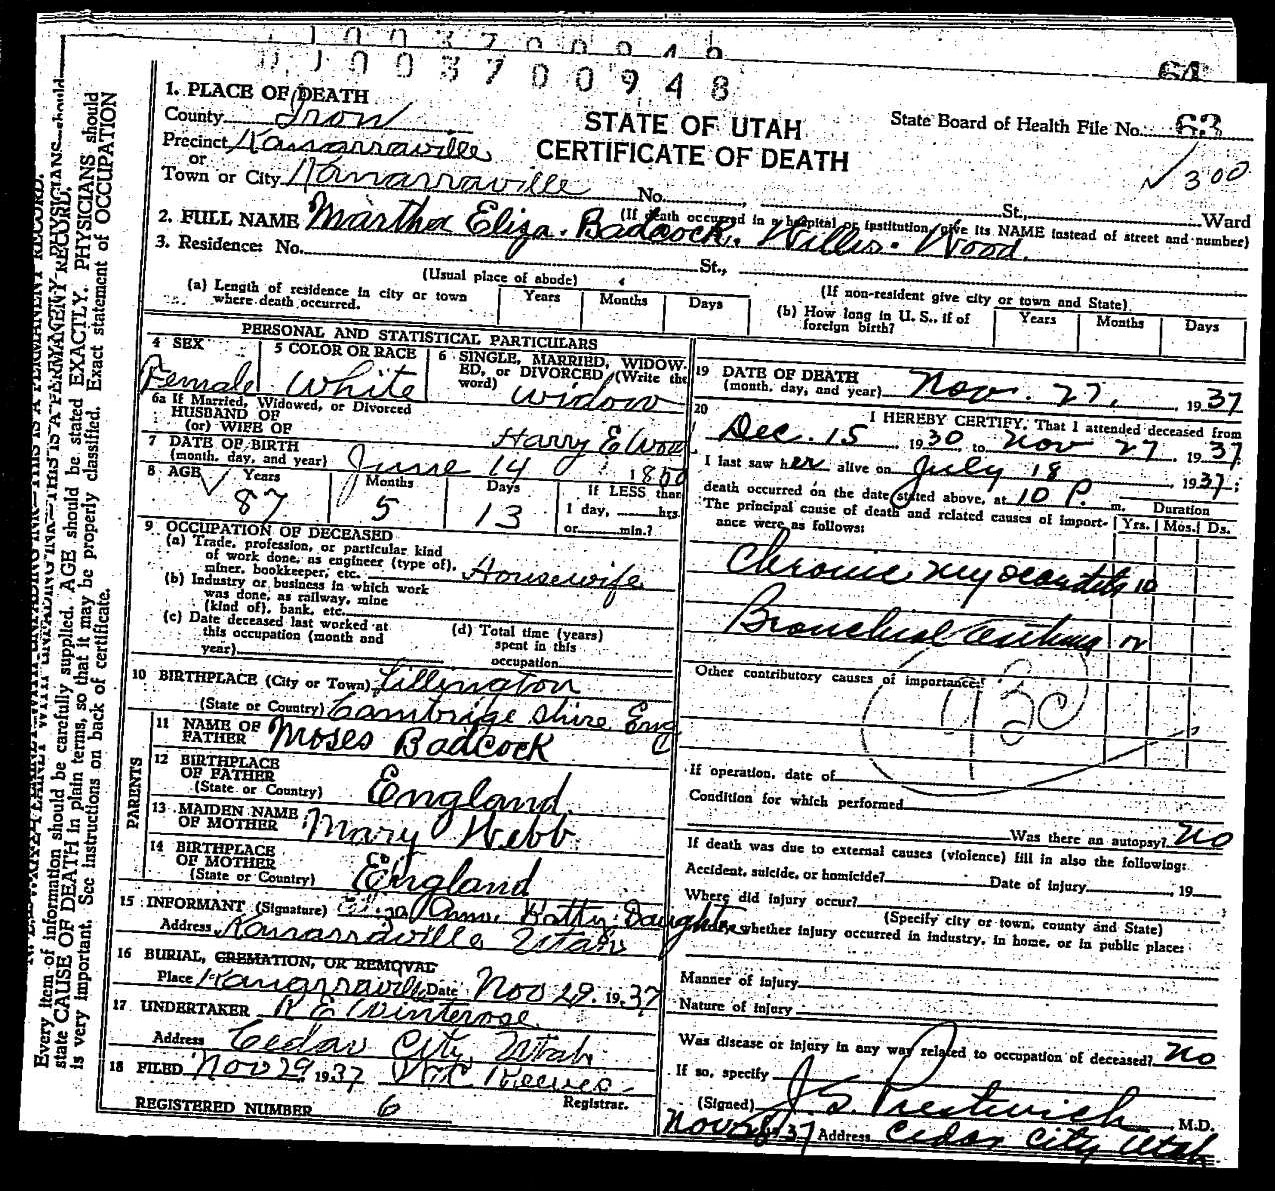 1003700948
01003700948
64
1. PLACE OF DEATH
County Iron
Precinct Kanarraville
or
Town or City Kanarraville No. St., Ward
STATE OF UTAH
CERTIFICATE OF DEATH
State Board of Health File No. 63
300
(If death occurred in a hospital or institution, give its NAME instead of street and number)
2. FULL NAME Martha Eliza. Badcock. Willis. Wood.
3. Residence: No. St.,
(Usual place of abode)
(If non-resident give city or town and State)
(a) Length of residence in city or town where death occurred. Years Months Days
(b) How long in U. S., if of foreign birth? Years Months Days
PERSONAL AND STATISTICAL PARTICULARS
4 SEX Female
5 COLOR OR RACE White
6 SINGLE, MARRIED, WIDOWED, or DIVORCED (Write the word) Widow
6a If Married, Widowed, or Divorced
HUSBAND OF
(or) WIFE OF Harry E Wood
7 DATE OF BIRTH
(month, day, and year) June 14 1850
8 AGE Years Months Days If LESS than
87 5 13 1 day, hrs.
or min.?
9 OCCUPATION OF DECEASED
(a) Trade, profession, or particular kind
of work done, as engineer (type of),
miner, bookkeeper, etc. Housewife
(b) Industry or business in which work
was done, as railway, mine
(kind of), bank, etc.
(c) Date deceased last worked at
this occupation (month and
year)
(d) Total time (years)
spent in this
occupation
10 BIRTHPLACE (City or Town) Lillington
(State or Country) Cambridge Shire Eng
PARENTS
11 NAME OF
FATHER Moses Badcock
12 BIRTHPLACE
OF FATHER
(State or Country) England.
13 MAIDEN NAME
OF MOTHER Mary Webb.
14 BIRTHPLACE
OF MOTHER
(State or Country) England
15 INFORMANT (Signature) Eliza Ann Daughter
Address Kanarraville Utah
16 BURIAL, CREMATION, OR REMOVAL
Place Kanarraville Date Nov 29. 1937
17 UNDERTAKER R E Winterose.
Address Cedar City, Utah.
18 FILED Nov 29. 1937 Reeves
Registrar.
REGISTERED NUMBER 6
19 DATE OF DEATH
(month, day, and year) Nov. 27, 1937
20 I HEREBY CERTIFY, That I attended deceased from
Dec. 15 1930 to Nov 27 1937
I last saw her alive on July 18, 1937;
death occurred on the date stated above, at 10 P. m.
The principal cause of death and related causes of importance were as follows:
Duration
Yrs. Mos. Ds.
Chronic Myocarditis 10
Bronchial Asthma
Other contributory causes of importance:
930
If operation, date of
Condition for which performed
Was there an autopsy? No
If death was due to external causes (violence) fill in also the following:
Accident, suicide, or homicide? Date of injury , 19
Where did injury occur?
(Specify city or town, county and State)
whether injury occurred in industry, in home, or in public place:
Manner of injury
Nature of injury
Was disease or injury in any way related to occupation of deceased? No
If so, specify
(Signed) J. S. Prestwich, M.D.
Nov 28 1937 Address Cedar City Utah
Every item of information should be carefully supplied. AGE should be stated EXACTLY. PHYSICIANS should
state CAUSE OF DEATH in plain terms, so that it may be properly classified. Exact statement of OCCUPATION
is very important. See instructions on back of certificate.